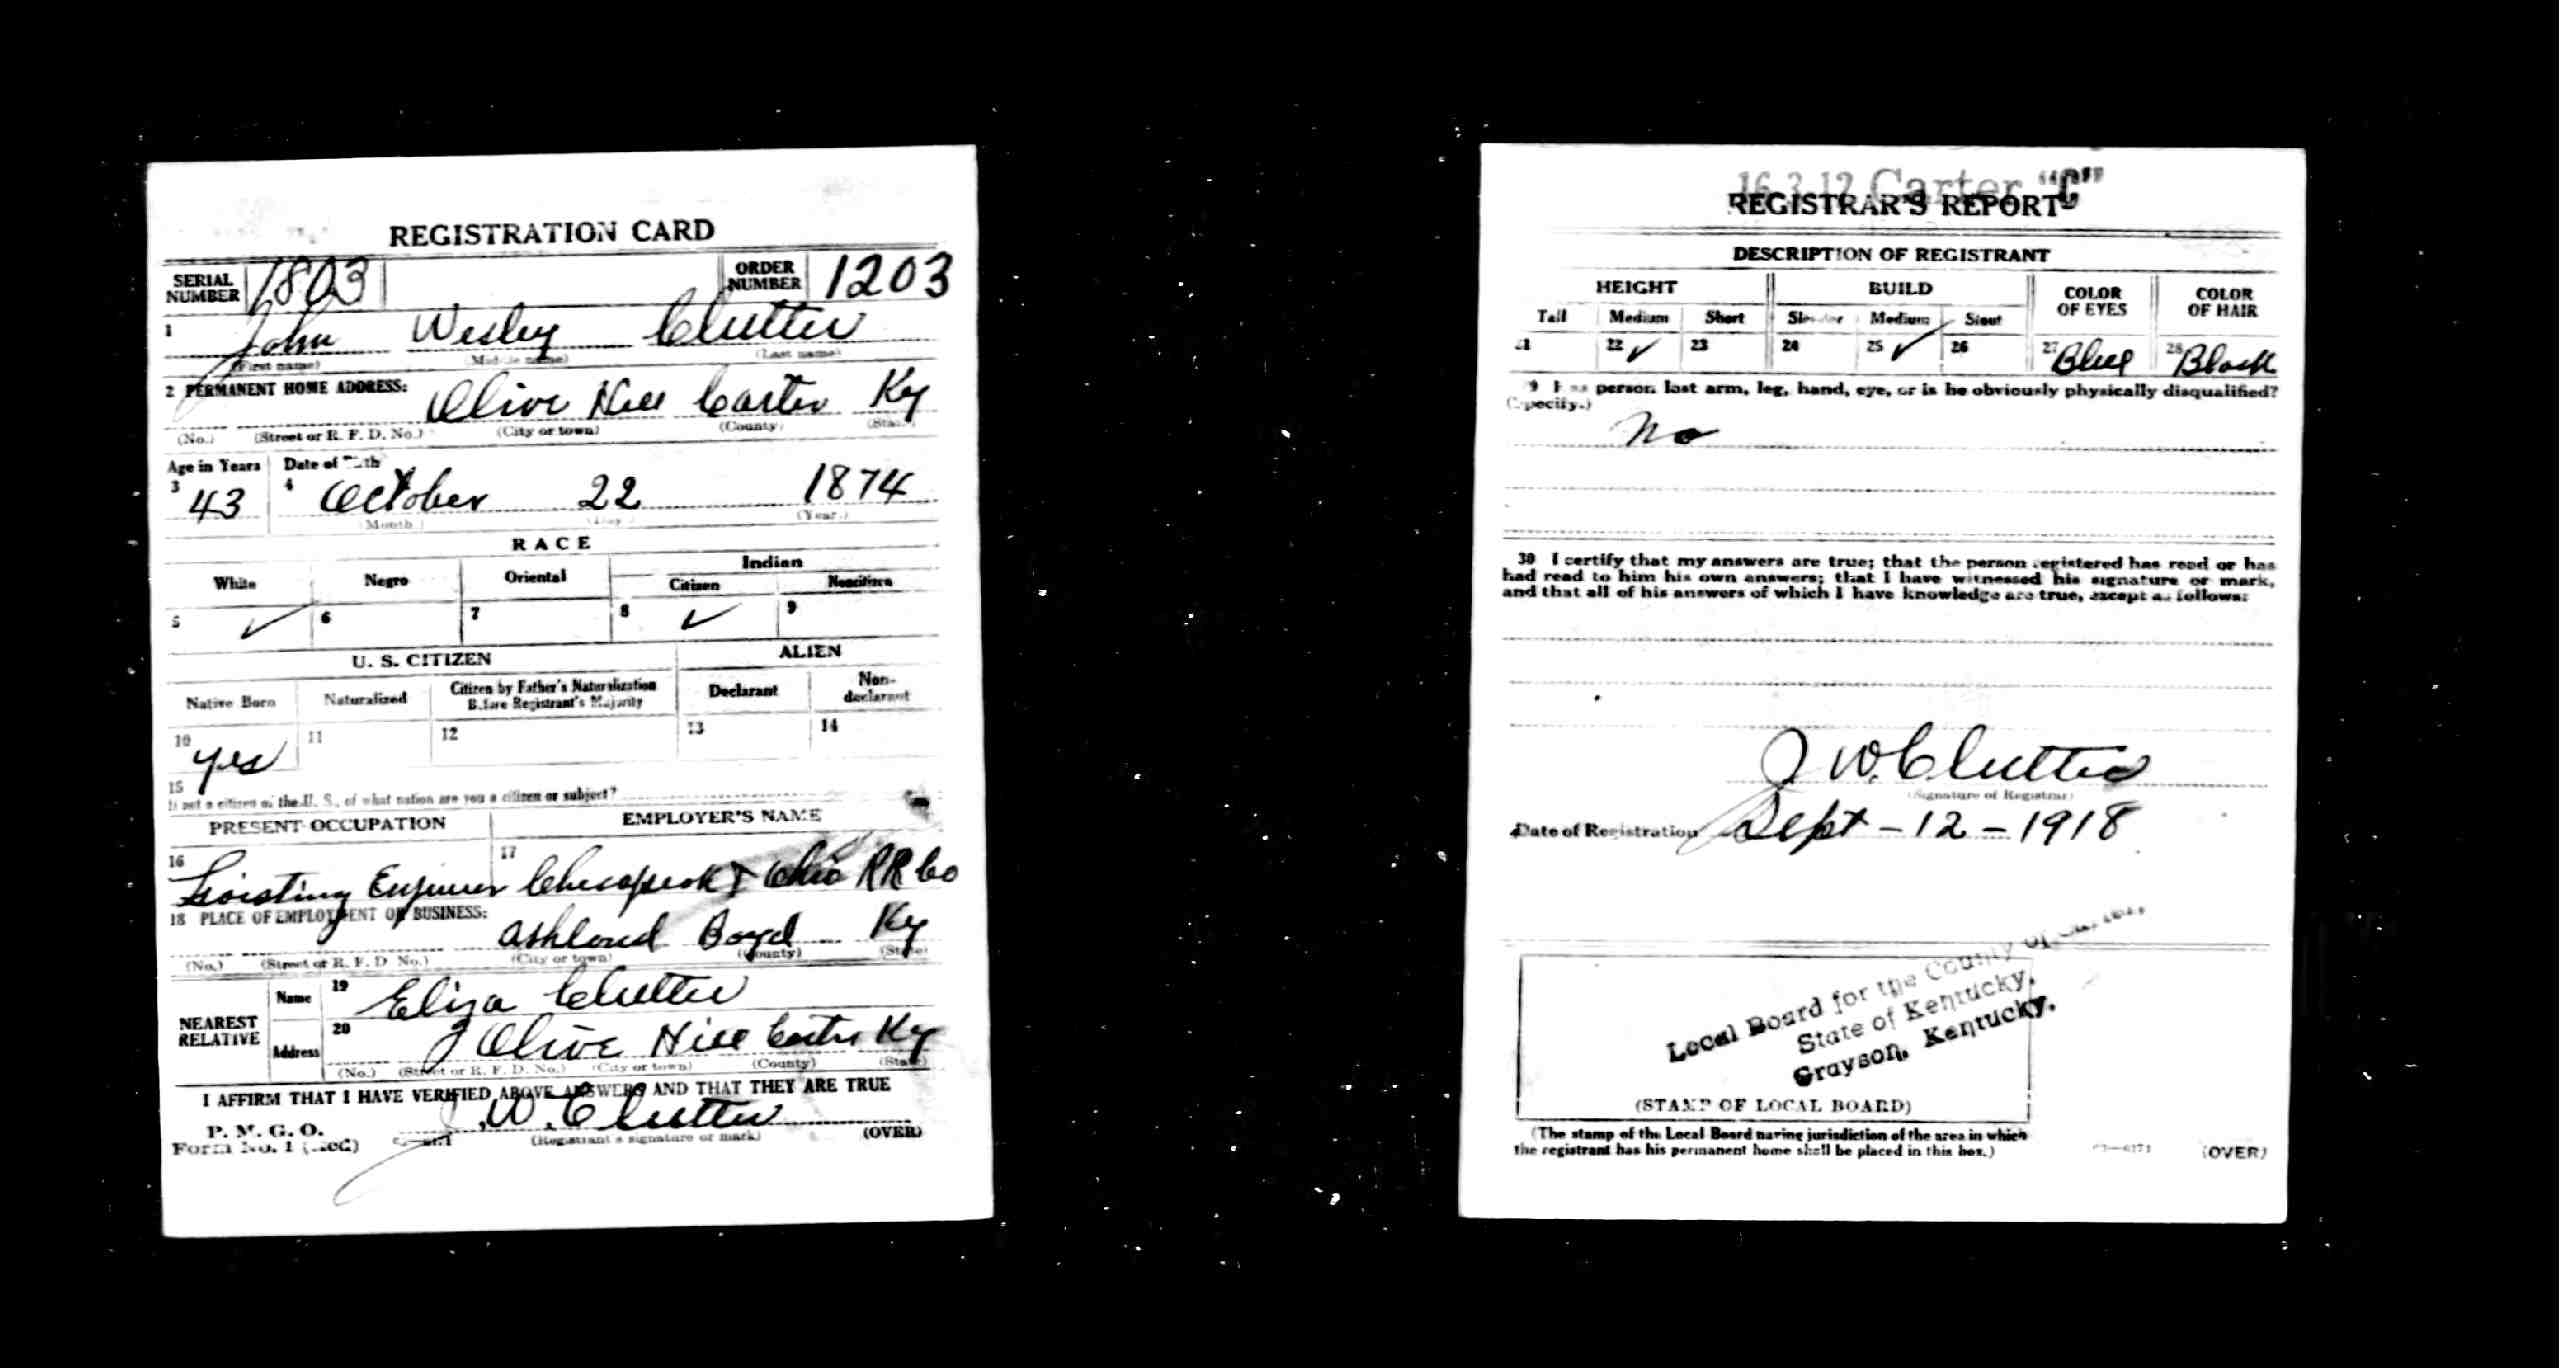 REGISTRATION CARD
SERIAL NUMBER 1803 ORDER NUMBER 1203
1 John Wesley Clutter
(First name) (Middle name) (Last name)
2 PERMANENT HOME ADDRESS: Olive Hill Carter Ky
(No.) (Street or R. F. D. No.) (City or town) (County) (State)
Age in Years Date of Birth
3 43 4 October 22 1874
(Month) (Day) (Year)
RACE
White Negro Oriental Indian
Citizen Noncitizen
5 ✓ 6 7 8 ✓ 9
U. S. CITIZEN ALIEN
Native Born Naturalized Citizen by Father's Naturalization Before Registrant's Majority Declarant Non-declarant
10 yes 11 12 13 14
15
If not a citizen of the U. S., of what nation are you a citizen or subject?
PRESENT OCCUPATION EMPLOYER'S NAME
16 Hoisting Engineer 17 Chesapeak & Ohio RR Co
18 PLACE OF EMPLOYMENT OR BUSINESS:
Ashland Boyd Ky
(No.) (Street or R. F. D. No.) (City or town) (County) (State)
NEAREST RELATIVE Name 19 Eliza Clutter
Address 20 Olive Hill Carter Ky
(No.) (Street or R. F. D. No.) (City or town) (County) (State)
I AFFIRM THAT I HAVE VERIFIED ABOVE ANSWERS AND THAT THEY ARE TRUE
P. M. G. O.
Form No. 1 (Red) J. W. Clutter
(Registrant's signature or mark) (OVER)
16 3 12 Carter "C"
REGISTRAR'S REPORT
DESCRIPTION OF REGISTRANT
HEIGHT BUILD COLOR OF EYES COLOR OF HAIR
Tall Medium Short Slender Medium Stout
21 22 ✓ 23 24 25 ✓ 26 27 Blue 28 Black
29 Has person lost arm, leg, hand, eye, or is he obviously physically disqualified?
(Specify.)
No
30 I certify that my answers are true; that the person registered has read or has
had read to him his own answers; that I have witnessed his signature or mark,
and that all of his answers of which I have knowledge are true, except as follows:
J W. Clutter
(Signature of Registrar)
Date of Registration Sept - 12 - 1918
Local Board for the County of
State of Kentucky,
Grayson, Kentucky.
(STAMP OF LOCAL BOARD)
(The stamp of the Local Board having jurisdiction of the area in which
the registrant has his permanent home shall be placed in this box.)
(OVER)